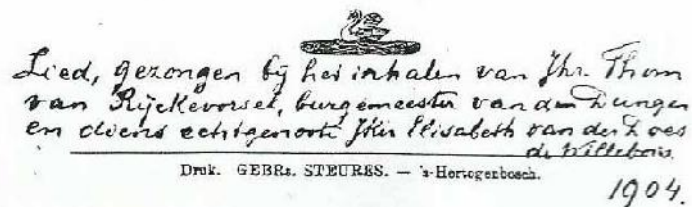 Lied, gezongen bij het inhalen van Jhr. Thom
van Rijckevorsel, burgemeester van den Dungen
en diens echtgenoote Jkvr Elisabeth van der Does
de Willebois.
Druk. GEBRs. STEURES. — 's-Hertogenbosch.
1904.